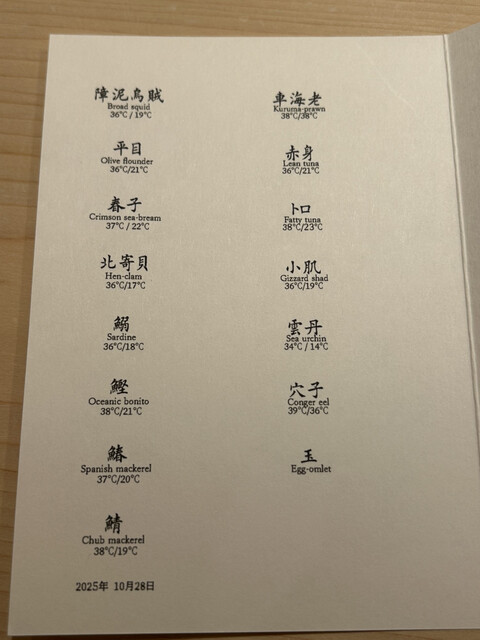 障泥烏賊
Broad squid
36°C / 19°C
平目
Olive flounder
36°C/21°C
春子
Crimson sea-bream
37°C / 22°C
北寄貝
Hen-clam
36°C/17°C
鰯
Sardine
36°C/18°C
鰹
Oceanic bonito
38°C/21°C
鰆
Spanish mackerel
37°C/20°C
鯖
Chub mackerel
38°C/19°C
2025年 10月28日
車海老
Kuruma-prawn
38°C/38°C
赤身
Lean tuna
36°C/21°C
トロ
Fatty tuna
38°C/23°C
小肌
Gizzard shad
36°C/19°C
雲丹
Sea urchin
34°C / 14°C
穴子
Conger eel
39°C/36°C
玉
Egg-omlet